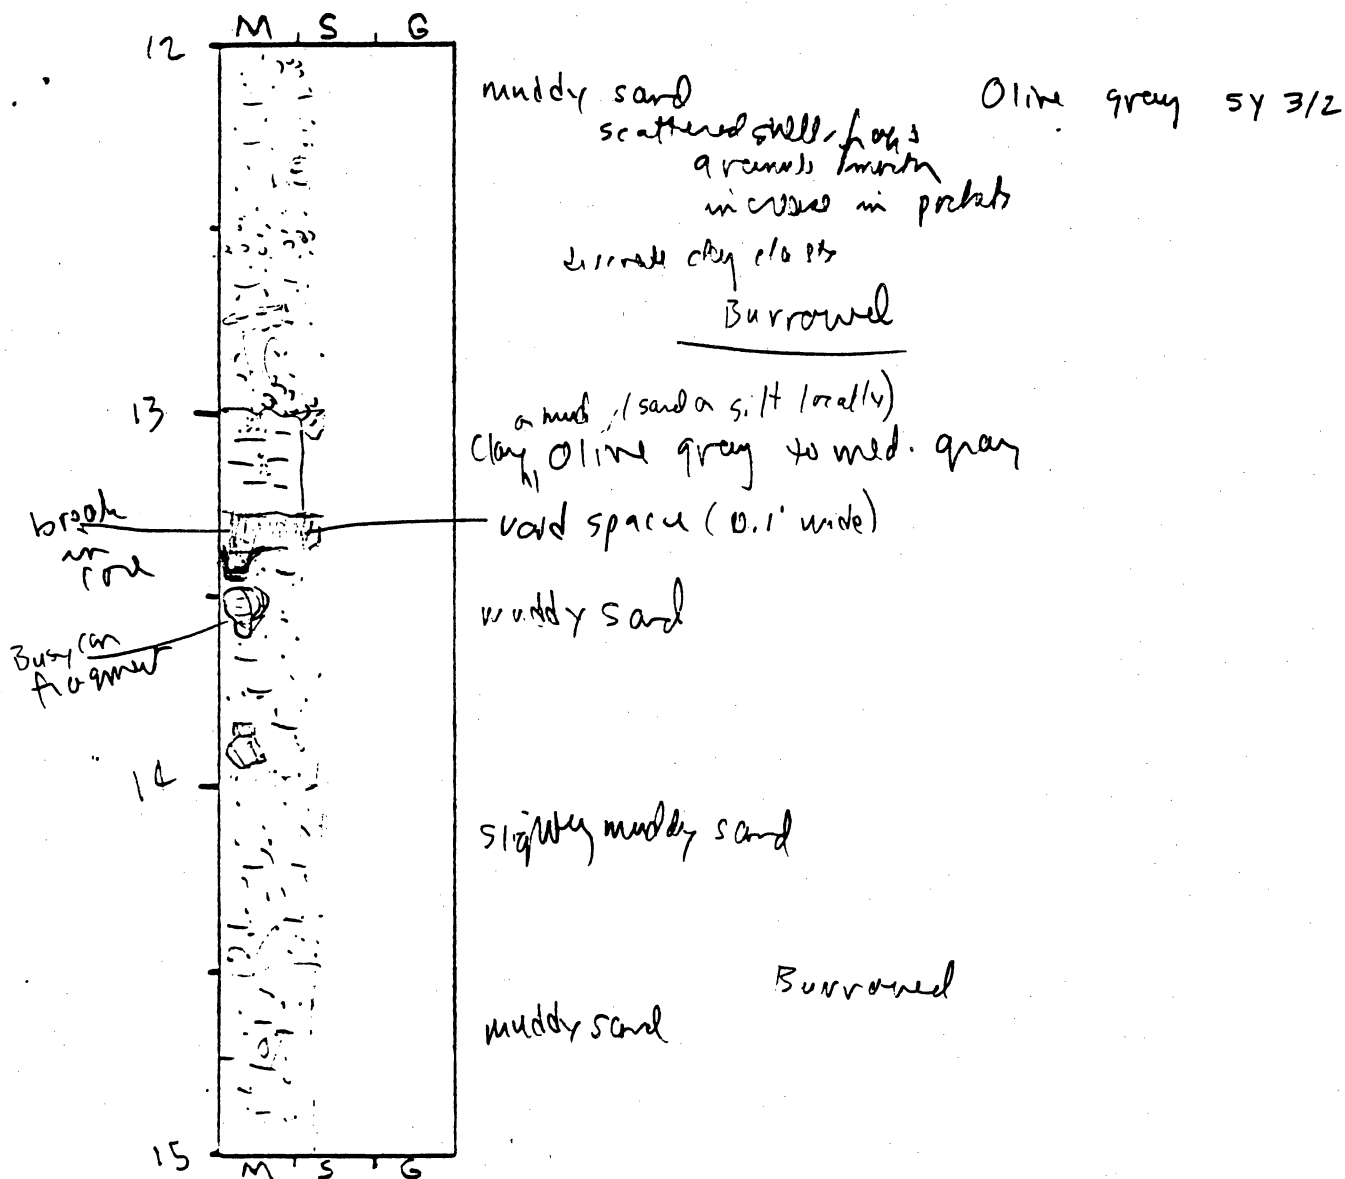 M S G
12
muddy sand Olive gray 5Y 3/2
scattered shell frags
increase in pockets
discrete clay clasts
Burrowed
13
or mud (sand or silt locally)
Clay, Olive gray to med. gray
break in core
void space (0.1' wide)
muddy sand
Busycon fragment
14
slightly muddy sand
Burrowed
muddy sand
15
M S G